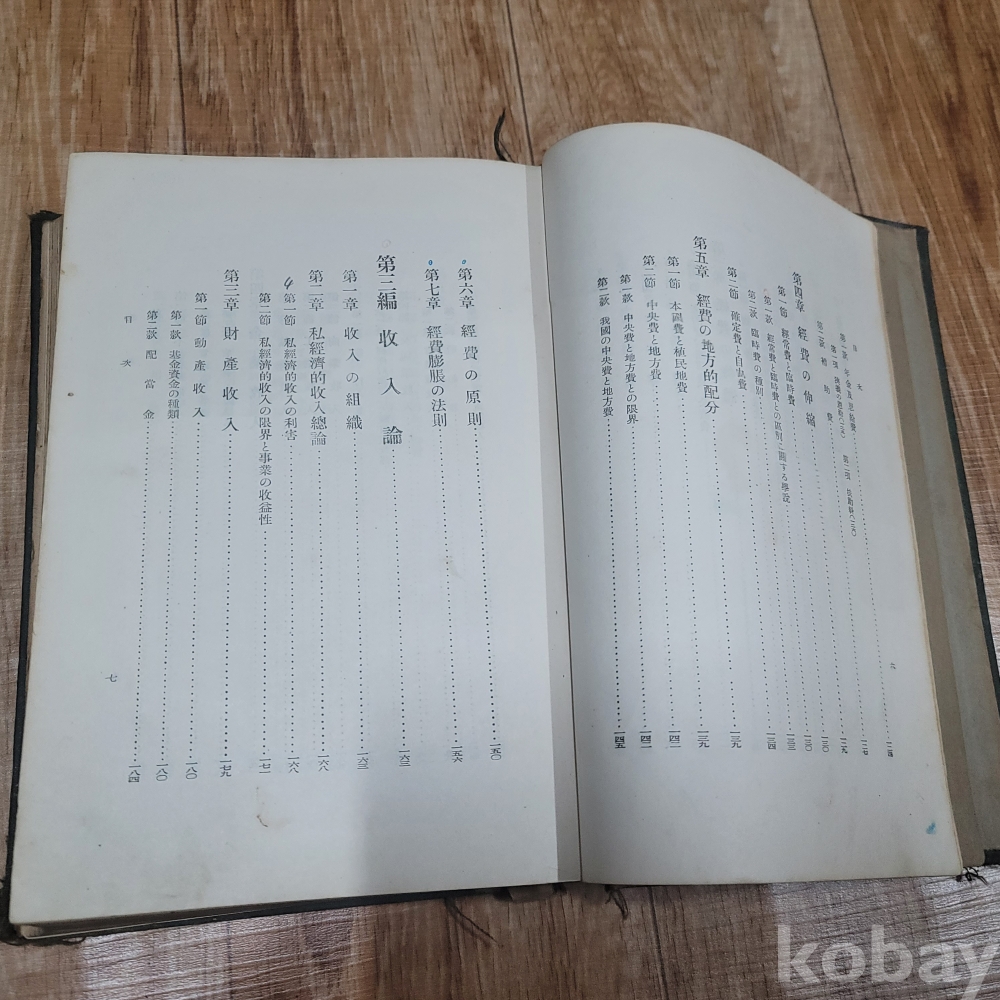 目次
第四章 經費の伸縮
第一節 經常費と臨時費
第一款 經常費と臨時費との區別に關する學說
第二款 臨時費の種別
第二節 確定費と自由費
第五章 經費の地方的配分
第一節 本國費と植民地費
第二節 中央費と地方費
第一款 中央費と地方費との限界
第二款 我國の中央費と地方費
六
一二七
一二九
一三〇
一三〇
一三三
一三四
一三九
一三九
一四二
一四二
一四五
第六章 經費の原則 一五〇
第七章 經費膨脹の法則 一五六
第三編 收入論 一六三
第一章 收入の組織 一六三
第二章 私經濟的收入總論 一六八
第一節 私經濟的收入の利害 一六八
第二節 私經濟的收入の限界と事業の收益性 一七一
第三章 財產收入 一七九
第一節 動產收入 一八〇
第一款 基金資金の種類 一八〇
第二款 配當金 一八四
目次
七
kobay